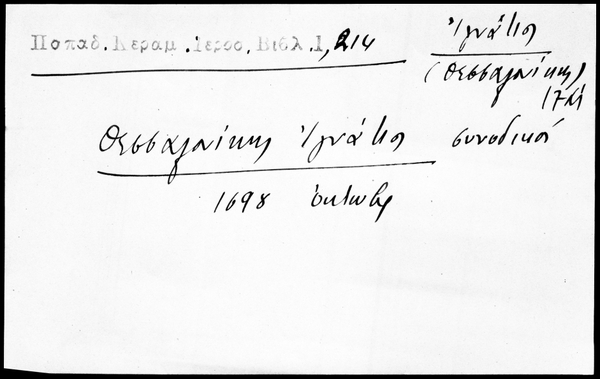 Παπαδ. Κεραμ. Ιεροσ. Βιβλ. 1, 214
Ἰγνάτιος
(Θεσσαλονίκης)
Θεσσαλονίκης Ἰγνάτιος συνοδικά
1698 ὀκτωβρ